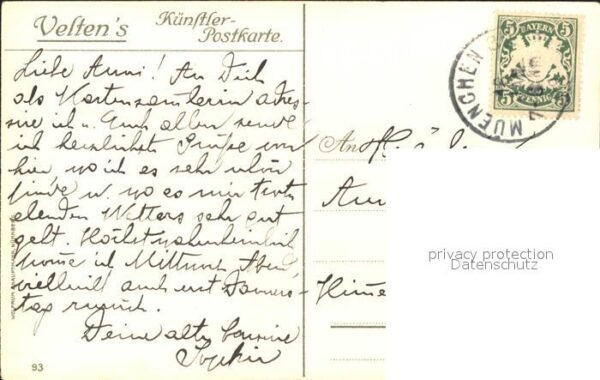 Velten's Künstler-
Postkarte.
Liebe Anni! An Dich
als Kartensamlerin adres-
sire ich u. Euch allen sende
ich herzlichste Grüße von
hier, wo ich es sehr schön
finde u. wo es mir trotz
elenden Wetters sehr gut
geht. Höchstwahrscheinlich
komme ich Mittwoch Abend
vielleicht auch erst Donners-
tag zurück.
Deine alte Cousine
Sophie
93
BAYERN
5 5
5 PFENNIG 5
MUENCHEN
An
privacy protection
Datenschutz